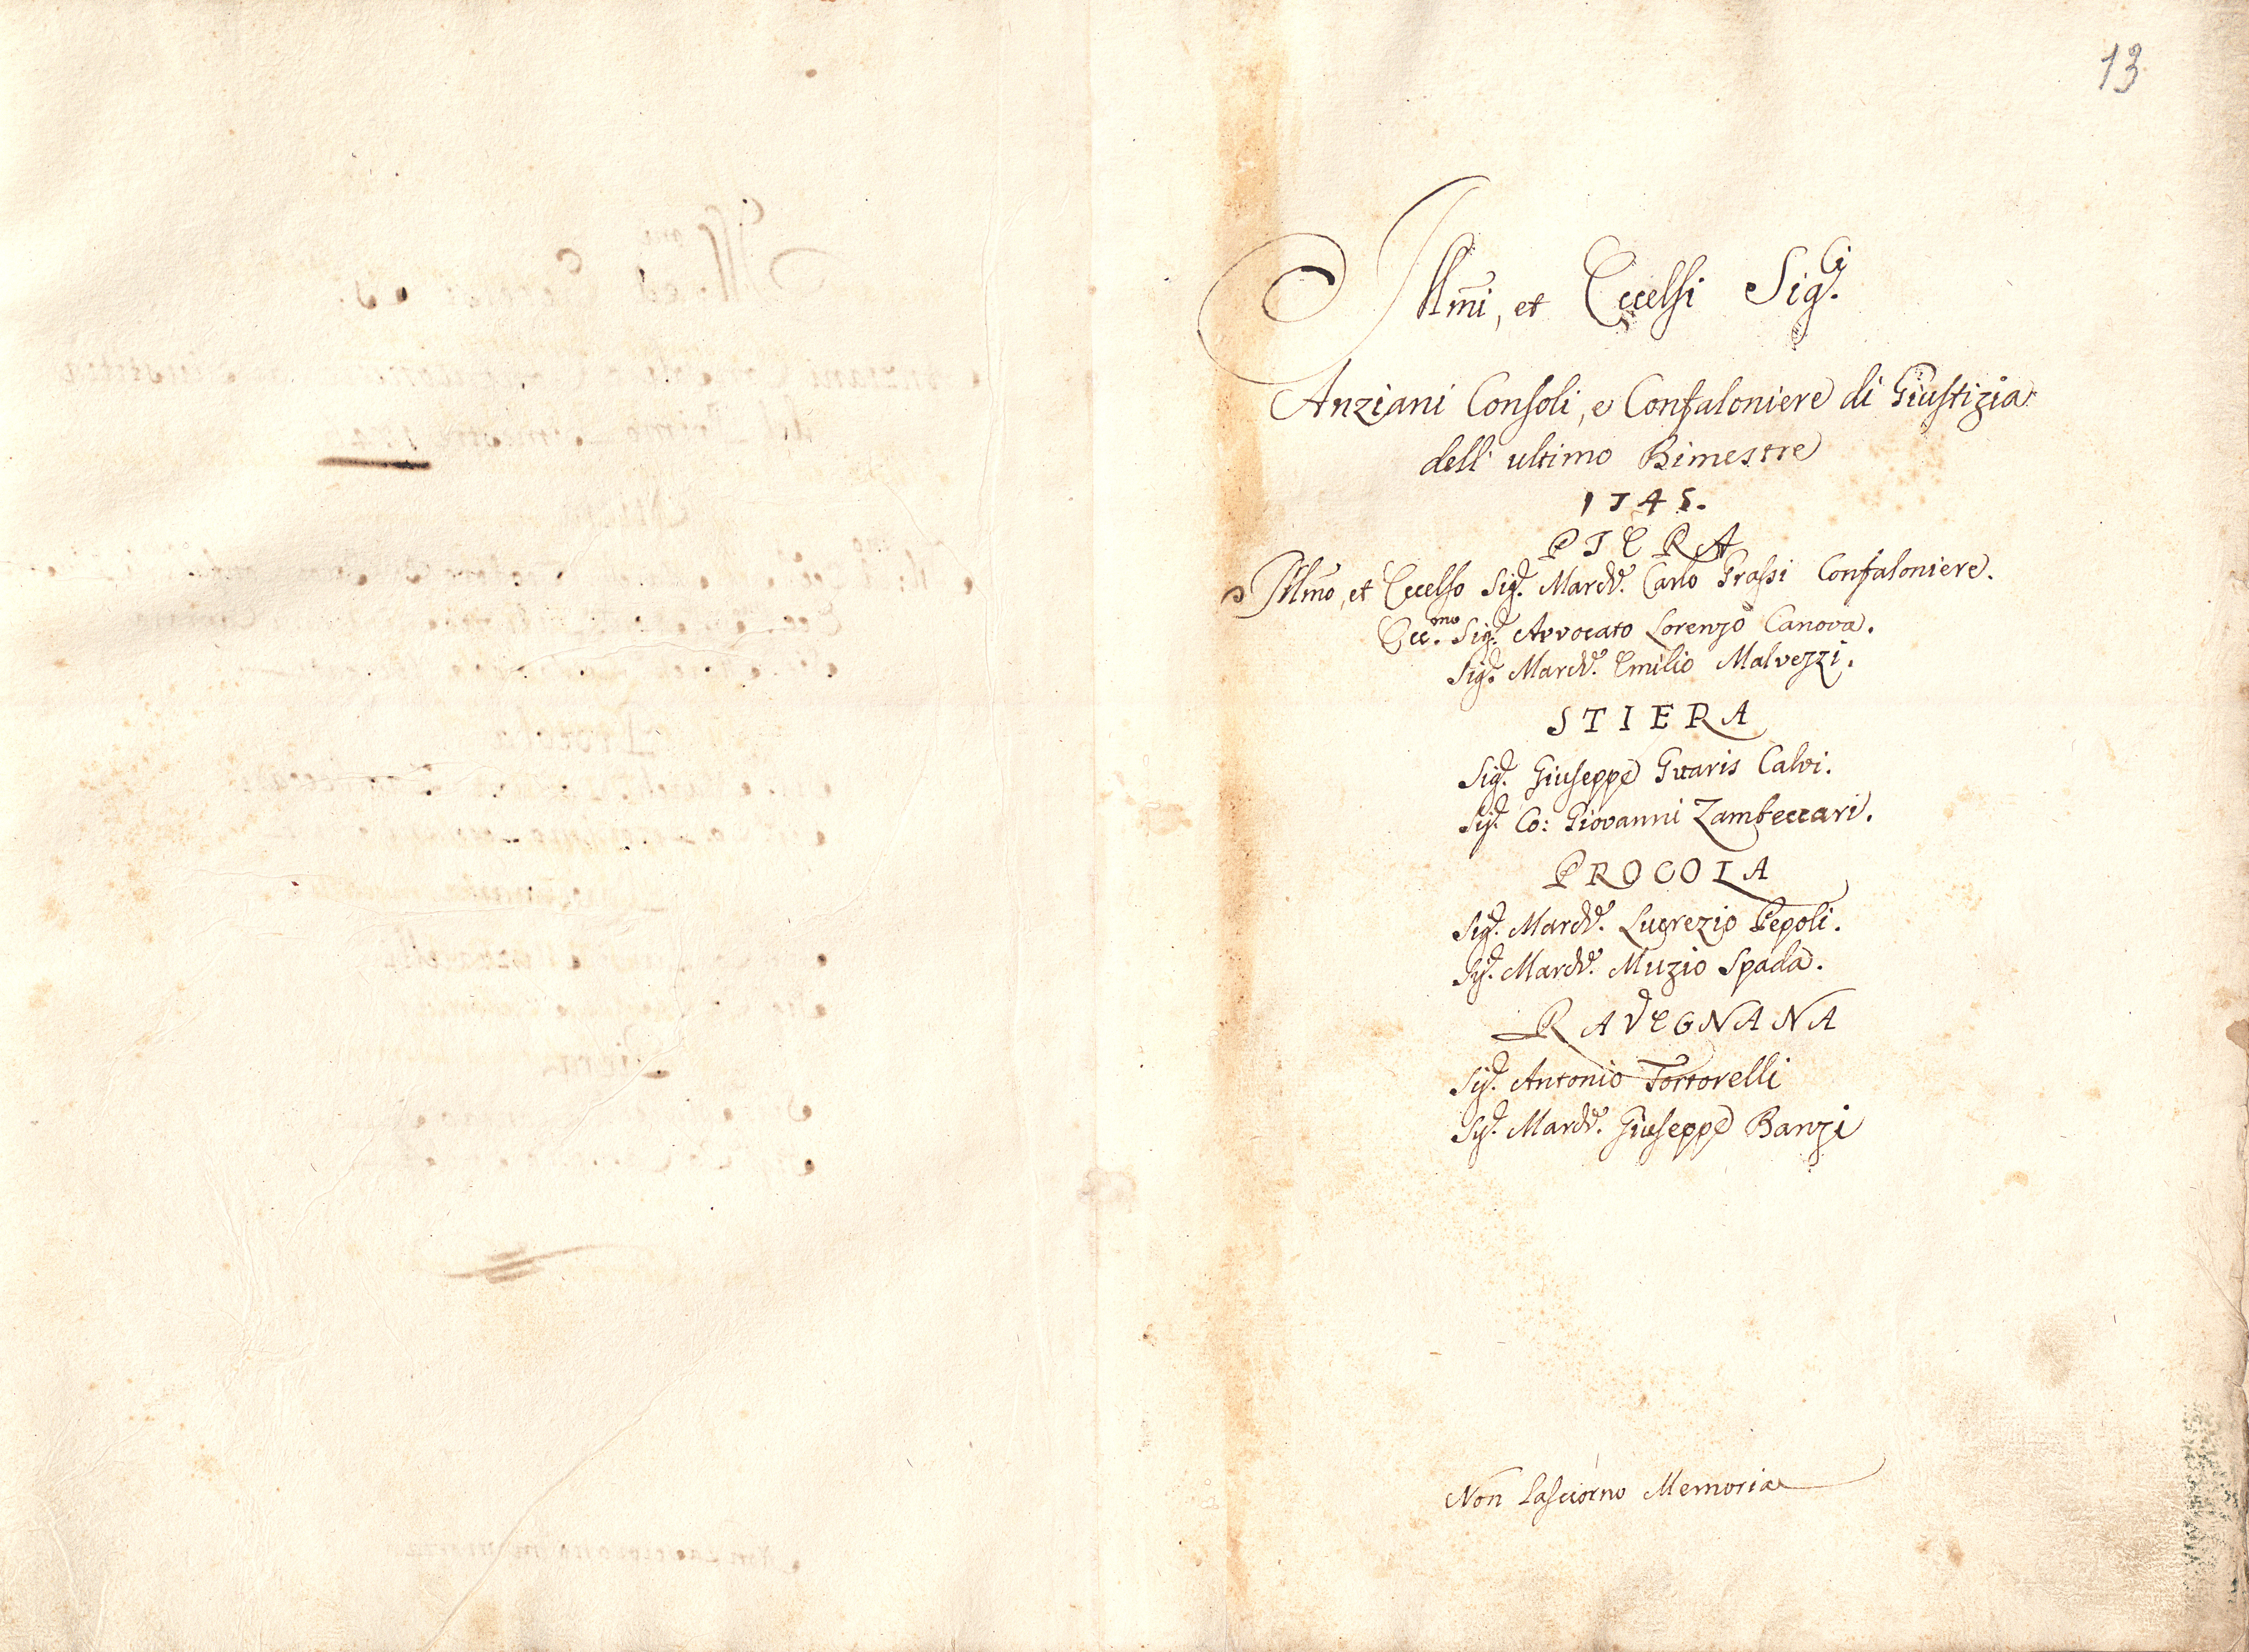 13
Illm̃i, et Eccelsi Sig.ri
Anziani Consoli, e Confaloniere di Giustizia
dell' ultimo Bimestre
1745.
PIERA
Illm̃o, et Eccelso Sig.r March.e Carlo Grassi Confaloniere.
Ecc.mo Sig.r Avvocato Lorenzo Canova.
Sig.r March.e Emilio Malvezzi.
STIERA
Sig.r Giuseppe Guaris Calvi.
Sig.r Co: Giovanni Zambeccari.
PROCOLA
Sig.r March.e Lucrezio Pepoli.
Sig.r March.e Muzio Spada.
RAVEGNANA
Sig.r Antonio Tortorelli
Sig.r March.e Giuseppe Banzi
Non lasciorno Memoria